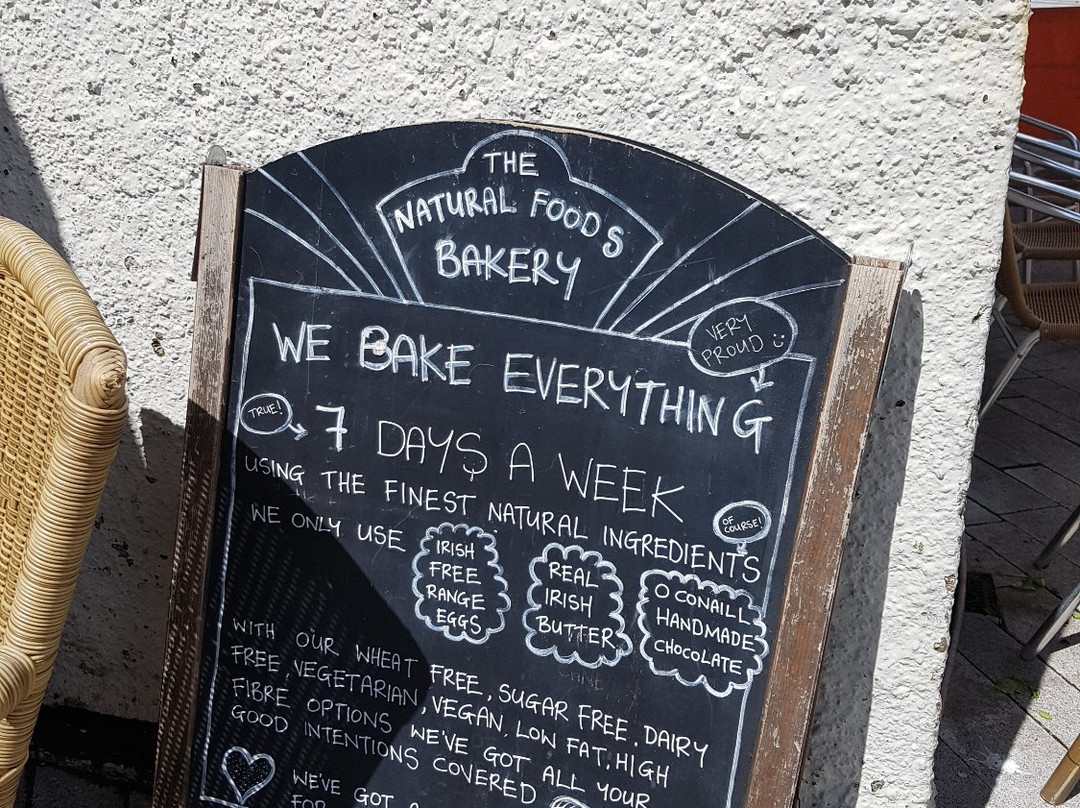 THE
NATURAL FOODS
BAKERY
VERY
PROUD
WE BAKE EVERYTHING
TRUE!
7 DAYS A WEEK
USING THE FINEST NATURAL INGREDIENTS
OF
COURSE!
WE ONLY USE
IRISH
FREE
RANGE
EGGS
REAL
IRISH
BUTTER
O CONAILL
HANDMADE
CHOCOLATE
WITH OUR WHEAT FREE, SUGAR FREE, DAIRY
FREE, VEGETARIAN, VEGAN, LOW FAT, HIGH
FIBRE OPTIONS WE'VE GOT ALL YOUR
GOOD INTENTIONS COVERED
WE'VE GOT
FOR